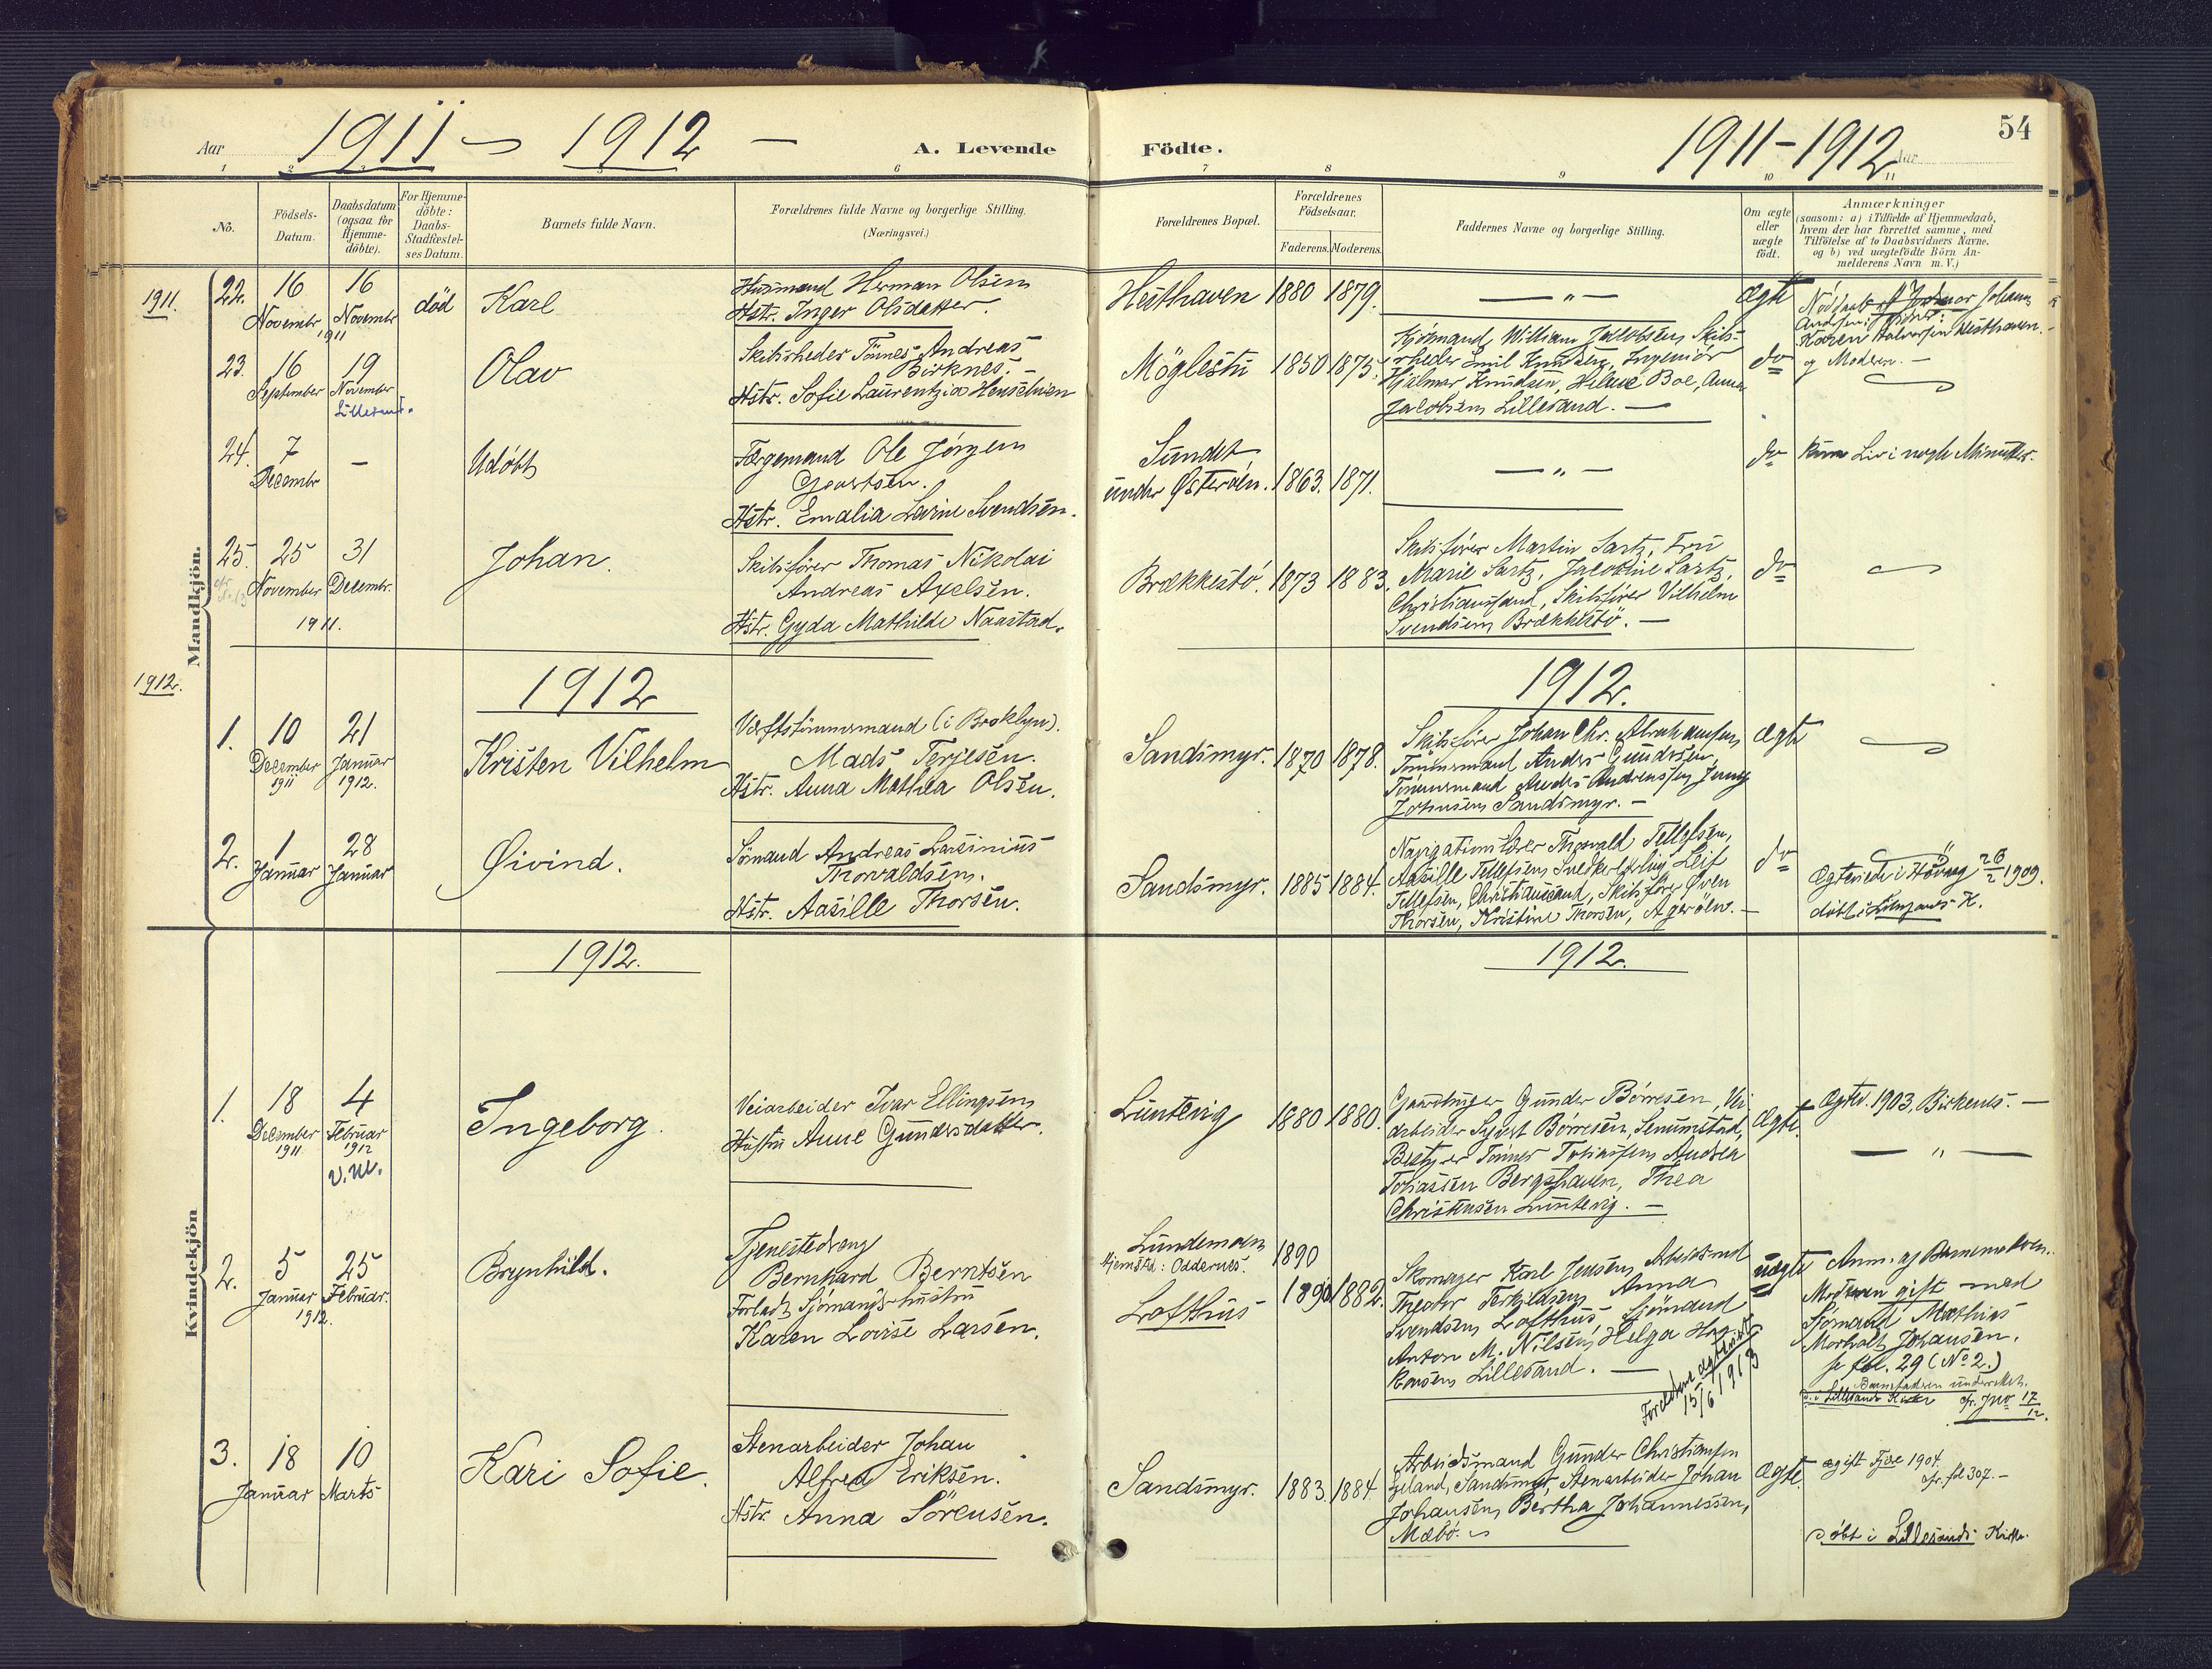 1911 – 1912 –
1911 – 1912
54
Aar
A. Levende
Födte.
Aar
1
2
3
5
6
7
8
9
10
11
No.
Födsels-
Datum.
Daabsdatum
(ogsaa for
Hjemme-
döbte).
For Hjemme-
döbte:
Daabs-
Stadfæstel-
ses Datum.
Barnets fulde Navn.
Forældrenes fulde Navne og borgerlige Stilling.
(Næringsvei.)
Forældrenes Bopæl.
Forældrenes
Födselsaar.
Faderens.
Moderens.
Faddernes Navne og borgerlige Stilling.
Om ægte
eller
uægte
födt.
Anmærkninger
(saasom: a) i Tilfælde af Hjemmedaab,
hvem der har forrettet samme, med
Tilföielse af to Daabsvidners Navne,
og b) ved uægtefödte Börn An-
melderens Navn m. V.)
Mandkjön.
1911.
22.
16
Novembr
16
Novembr
1911
död
Karl
Husmand Herman Olsen
Hstr. Inger Olsdatter.
Hesthaven
1880
1879.
— „ —
Ægte
Johans
Karen Halvorsen Hesthaven.
og Moderen. —
23.
16
September
19
November
Lillesand.
Olav
Skibsrheder Tönnes Andreas
Birknes. —
Hstr. Sofie Laurentzia Henschien
Möglestu
1850
1875.
William Jacobsen, Skibs-
rheder Emil Knudsen, Ingeniör
Hjalmar Knudsen, Helene Boe, Anna
Jacobsen Lillesand. —
do
24.
7
Decembr
–
Udöbt
Færgemand Ole Jörgen
Gjeertsen.
Hstr. Emalia Lovine Svendsen.
Sundet
under Østeröen.
1863.
1871.
— „ —
do
kun Liv i nogle Minutter.
25.
25
November
31
Decembr.
1911.
Johan.
Skibsförer Thomas Nikolai
Andreas Axelsen.
Hstr. Gyda Mathilde Naastad.
Brækkestö.
1873
1883.
Skibsförer Martin Sartz, Fru
Marie Sartz, Jacobine Sartz,
Christianssand, Skibsförer Vilhelm
Svendsen, Brækkestö. —
do
1912.
1912
1912.
1.
10
December
1911
21
Januar
1912.
Kristen Vilhelm
Værftstömmermand (i Broklyn).
Mads Terjesen.
Hstr. Anna Mathea Olsen.
Sandsmyr.
1870
1878.
Skibsförer Johan Chr. Abrahamsen
Tömmermand Anders Gundersen,
Tömmermand Anders Andreassen, Jenny
Johnsen Sandsmyr. —
Ægte
2.
1
Januar
28
Januar
Øivind.
Sömand Andreas
Thorvaldsen.
Hstr. Aasille Thorsen.
Sandsmyr.
1885
1884.
Navigationslærer Thorvald Tellefsen,
Aasille Tellefsen, Leif
Tellefsen, Christianssand, Skibsförer Øven
Thorsen, Kristine Thorsen, Ageröen. —
do
Ægteviede i Hövaag 26/2 1909.
döbt i Lillesands K.
1912.
1912.
Kvindekjön
1.
18
December
1911
4
Februar
1912
v. m.
Ingeborg.
Veiarbeider Ivar Ellingsen
Hustru Anne Gundersdatter.
Luntevig
1880
1880.
Gaardbruger Gunder Börresen, Vei
arbeider Sylvest Börresen, Senumstad,
Bestyrer Tönnes Tobiassen, Andrea
Tobiassen Bergshaven, Thea
Christensen Luntevig. —
Ægte.
Ægtev. 1903, Birkenes. —
— „ —
2.
5
Januar
25
Februar.
1912.
Brynhild.
Tjenestedreng
Bernhard Berntsen
Forladt Sjömands-hustru
Karen Lovise Larsen.
Lundemoen
Hjemsted: Oddernes.
Lofthus
1890
1890
1882.
Skomager Karl Jensen, Arbeidsmd
Theodor Terkildsen, Anna
Svendsen, Lofthus, Sjömand
Anton M. Nilsen, Helga Haa-
konsen Lillesand. —
Forældrene ægteviet
15/6 1913
uægte
Anm. af Barnemoderen.
Moderen gift med
Sjömand Mathias
Morholt Johansen.
se fol. 29 (No 2.)
Barnefaderen undersekt.
d. i Lillesands Kirke
cfr. Jno 17/12.
3.
18
Januar
10
Marts
Kari Sofie.
Stenarbeider Johan
Alfred Eriksen.
Hstr. Anna Sörensen.
Sandsmyr.
1883.
1884.
Arbeidsmand Gunder Christiansen
Sandsmyr, Stenarbeider Johan
Johansen, Bertha Johannessen,
Mæbö.
Ægte.
ægift Fjære 1904.
cfr. fol 307. —
Döbt i Lillesands Kirke.